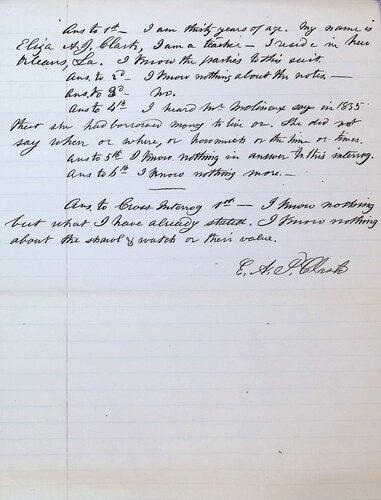 Ans to 1st — I am thirty years of age. My name is
Eliza A. J. Clark, I am a teacher — I reside in New
Orleans, La. I know the parties to this suit.
Ans. to 2d — I know nothing about the notes. —
Ans. to 3d — No.
Ans to 4th I heard Mrs Molinaux say in 1855
that she had borrowed money to live on. She did not
say when or where, or how much or the time or times.
Ans to 5th I know nothing in answer to this interrog.
Ans to 6th I know nothing more. —
Ans. to Cross Interrog 1st — I know nothing
but what I have already stated. I know nothing
about the shawl & watch or their value.
E. A. J. Clark